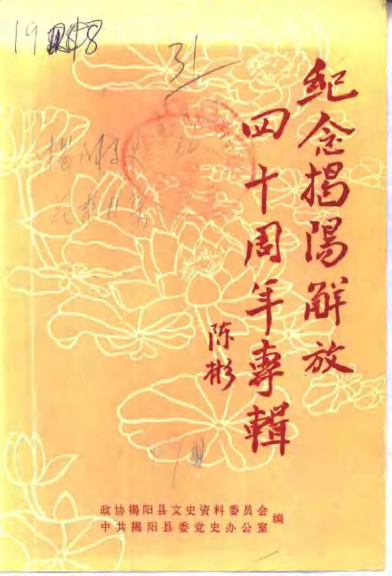 纪念揭陽解放
四十周年專輯
陈彬
31
政协揭阳县文史资料委员会
中共揭阳县委党史办公室
编